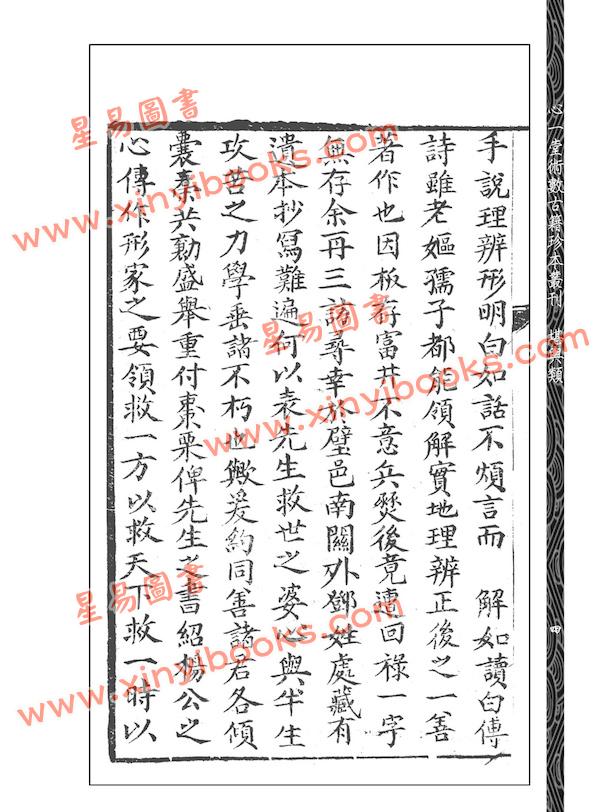 手說理辨形明白如話不煩言而　解如讀白傅
詩雖老嫗孺子都能領解實地理辨正後之一善
著作也因板存富井不意兵燹後竟遭回祿一字
無存余再三訪尋幸於璧邑南關外鄧姓處藏有
遺本抄寫難遍何以表先生救世之婆心與半生
攻苦之力學垂諸不朽也歟爰約同善諸君各傾
囊橐共勷盛舉重付棗栗俾先生之書紹楊公之
心傳作形家之要領救一方以救天下救一時以
心一堂術數古籍珍本叢刊　堪輿類
四
星易圖書
www.xinyibooks.com
星易圖書
www.xinyibooks.com
www.xinyibooks.com
星易圖書
www.xinyibooks.com